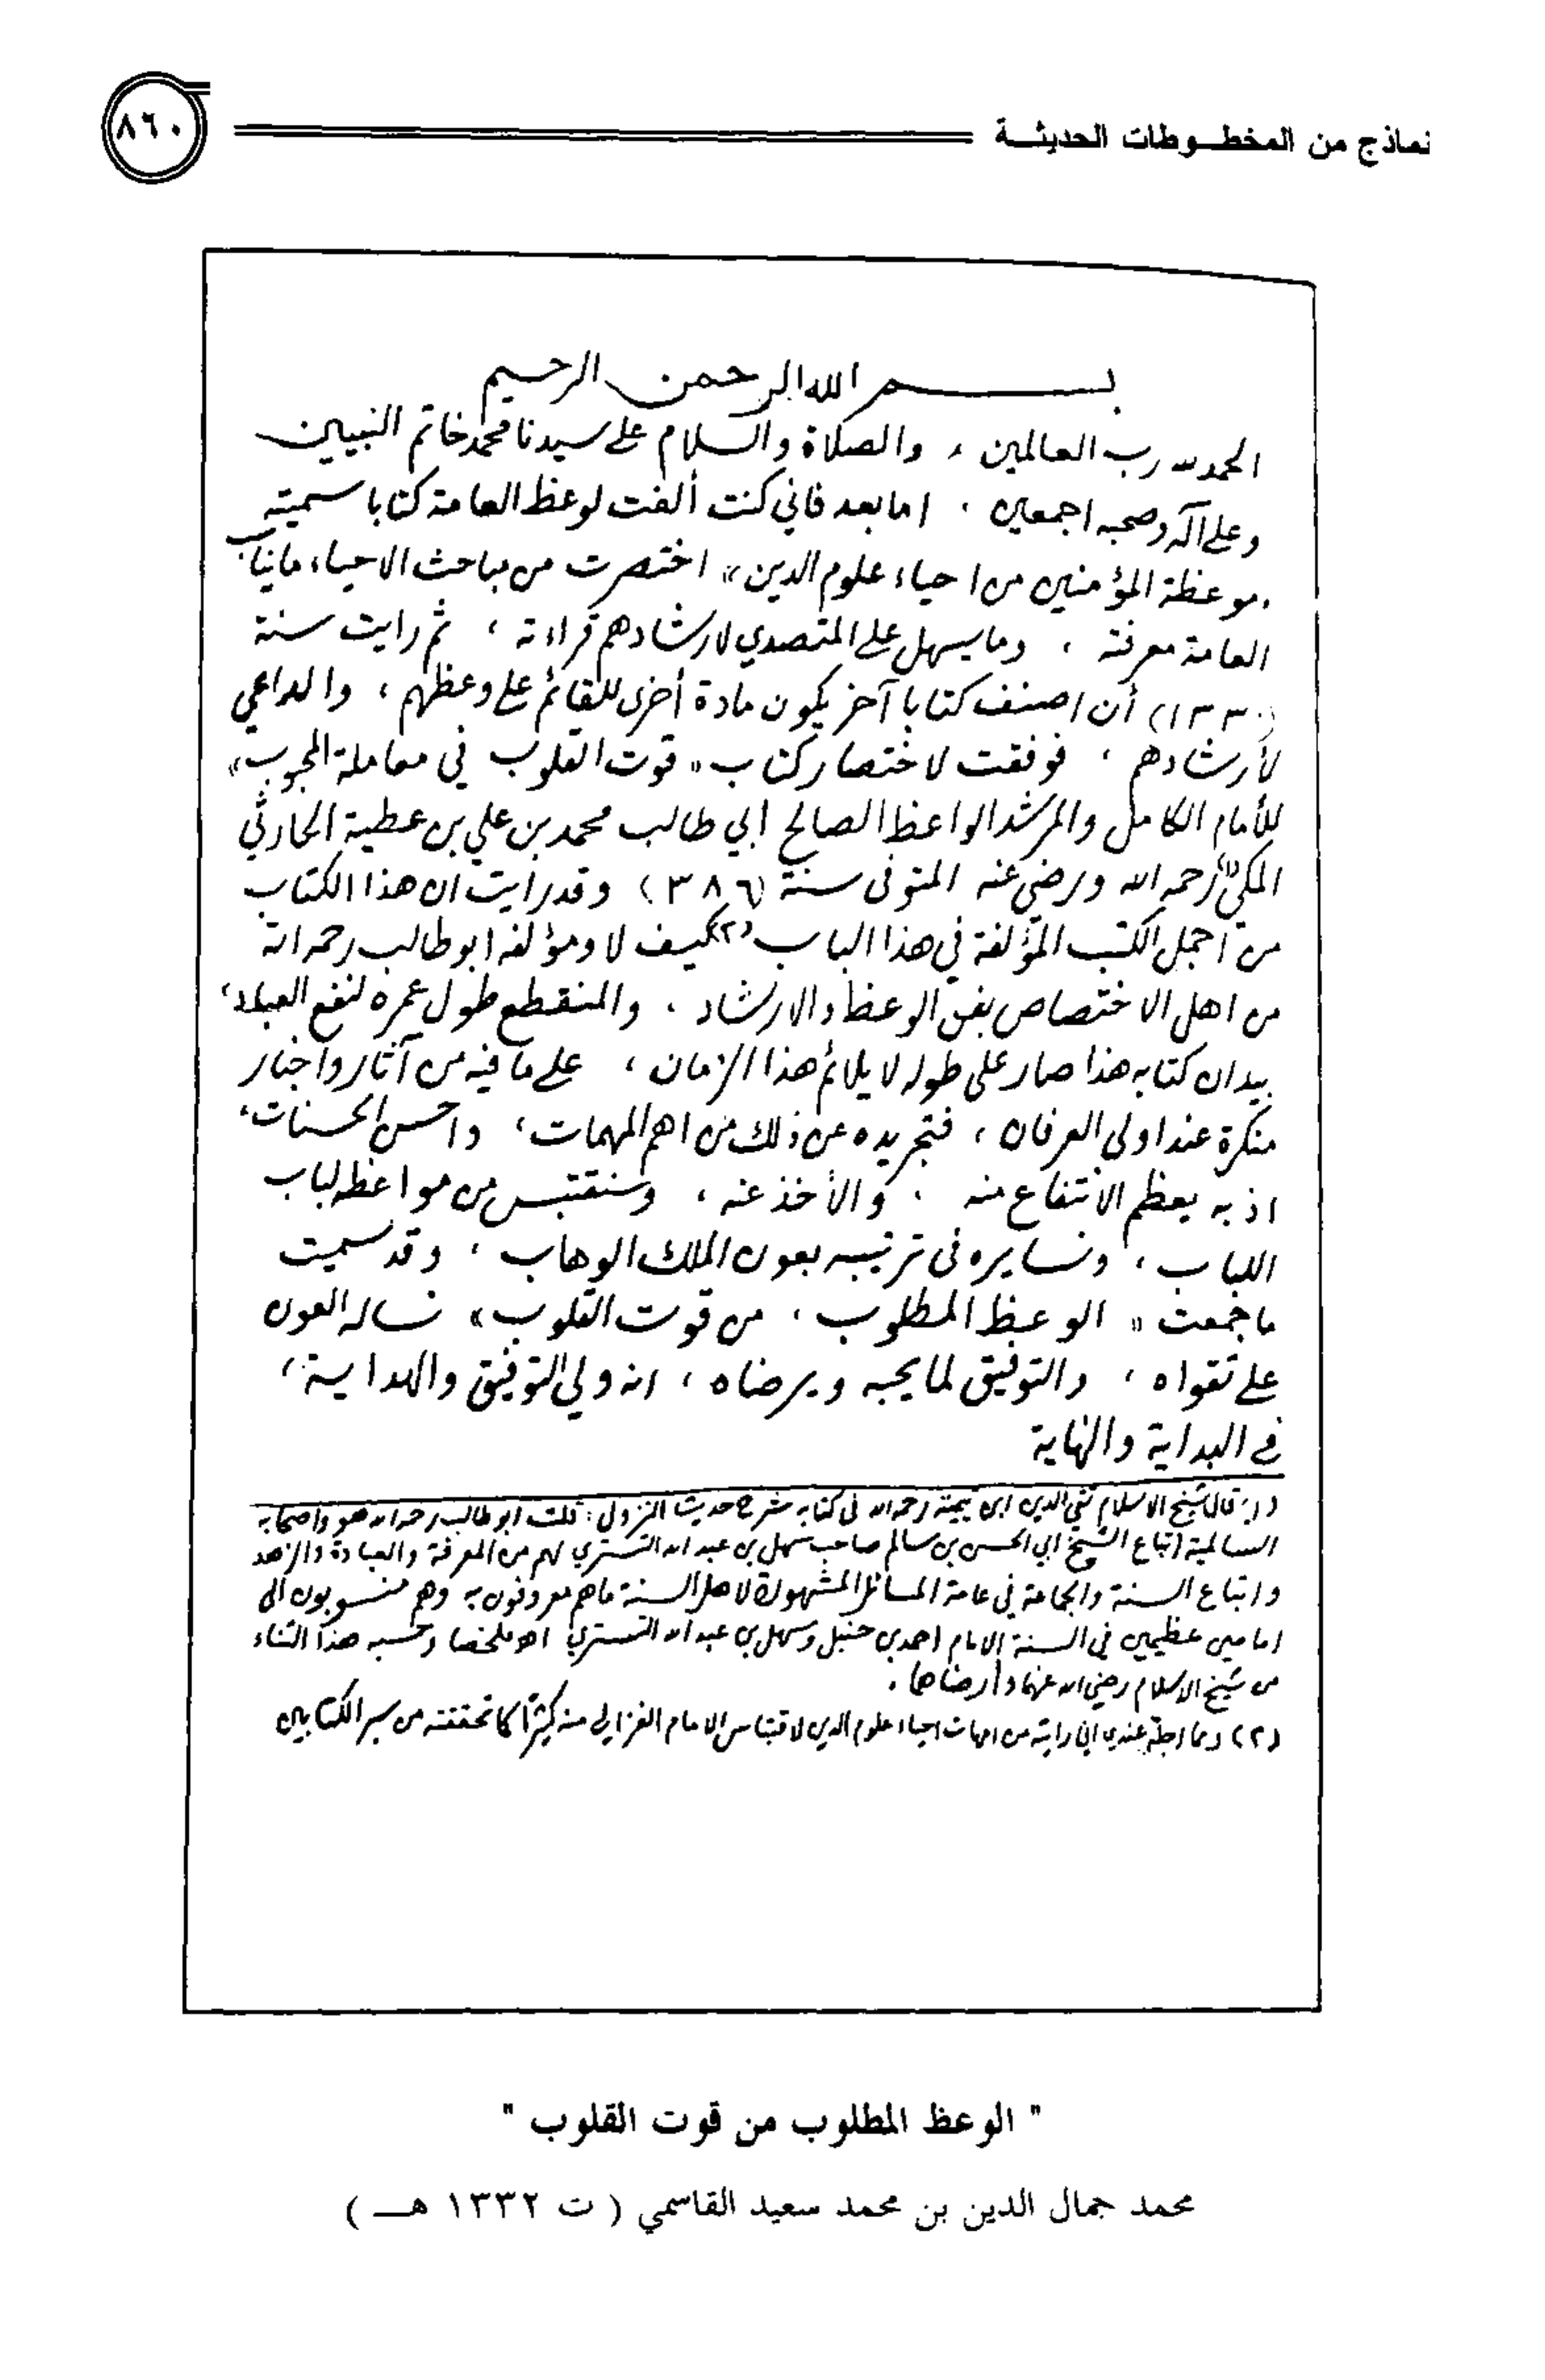 نماذج من المخطـوطات الحديثـة
٨٦٠
بسم الله الرحمن الرحيم
الحمد لله رب العالمين ، والصلاة والسلام على سيدنا محمد خاتم النبيين
وعلى آله وصحبه اجمعين ، اما بعد فاني كنت ألفت لوعظ العامة كتابا سميته
«موعظة المؤمنين من احياء علوم الدين» اختصرت من مباحث الاحياء ما يناسب
العامة معرفته ، وما يسهل على المتصدي لارشادهم قراءته ، ثم رايت سنة
(١٣٣٠) أن اصنف كتابا آخر يكون مادة أخرى للقائم على وعظهم ، والداعي
لأرشادهم ، فوفقت لاختصار كتاب « قوت القلوب في معاملة المحبوب»
للأمام الكامل والمرشد الواعظ الصالح أبي طالب محمد بن علي بن عطية الحارثي
المكي(١) رحمه الله ورضي عنه المتوفى سنة (٣٨٦) وقد رأيت ان هذا الكتاب
من اجمل الكتب المؤلفة في هذا الباب (٢) كيف لا ومؤلفه ابو طالب رحمه الله
من اهل الاختصاص بفن الوعظ والارشاد ، والمنقطع طول عمره لنفع العباد ،
بيد ان كتابه هذا صار على طوله لا يلائم هذا الزمان ، على ما فيه من آثار واخبار
منكرة عند اولى العرفان ، فتجريده عن ذلك من اهم المهمات ، واحسن الحسنات ،
اذ به يعظم الانتفاع منه ، والأخذ عنه ، وسنقتبس من مواعظه لباب
اللباب ، ونسايره في ترتيبه بعون الملك الوهاب ، وقد سميت
ما جمعت « الوعظ المطلوب ، من قوت القلوب » نساله العون
على تقواه ، والتوفيق لما يحبه ويرضاه ، انه ولي التوفيق والهداية ،
في البداية والنهاية
(١) قال شيخ الاسلام تقي الدين ابن تيمية رحمه الله في كتابه شرح حديث النزول : قلت ابو طالب رحمه الله هو واصحابه
السالمية اتباع الشيخ ابي الحسن بن سالم صاحب سهل بن عبد الله التستري لهم من المعرفة والعبادة والزهد
واتباع السنة والجماعة في عامة المسائل المشهورة لاهل السنة ما هم معروفون به وهم منسوبون الى
امامين عظيمين في السنة الامام احمد بن حنبل وسهل بن عبد الله التستري اهـ ملخصا وحسبه هذا الثناء
من شيخ الاسلام رضي الله عنهما وأرضاهما .
(٢) ومما اجله عندي اني رايته من امهات احياء علوم الدين لاقتباس الامام الغزالي منه كثيرًا كما تحققته من سبر الكتابين
" الوعظ المطلوب من قوت القلوب "
محمد جمال الدين بن محمد سعيد القاسمي ( ت ١٣٣٢ هـ )